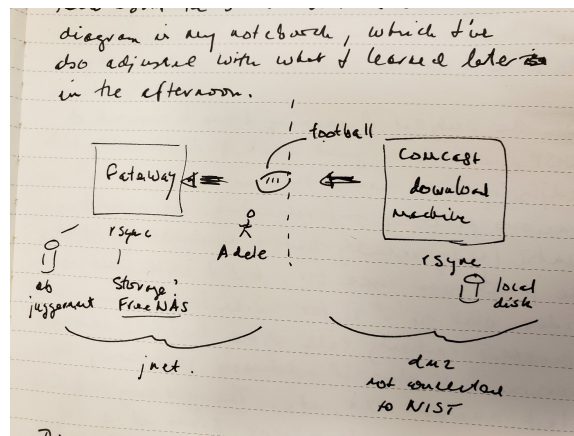 diagram in my notebook, which I've
also adjusted with what I learned later
in the afternoon.
football
Gateway
comcast
download
machine
Adele
rsync
rsync
ab
juggernaut
Storage:
FreeNAS
local
disk
jnet.
dmz
not connected
to NIST